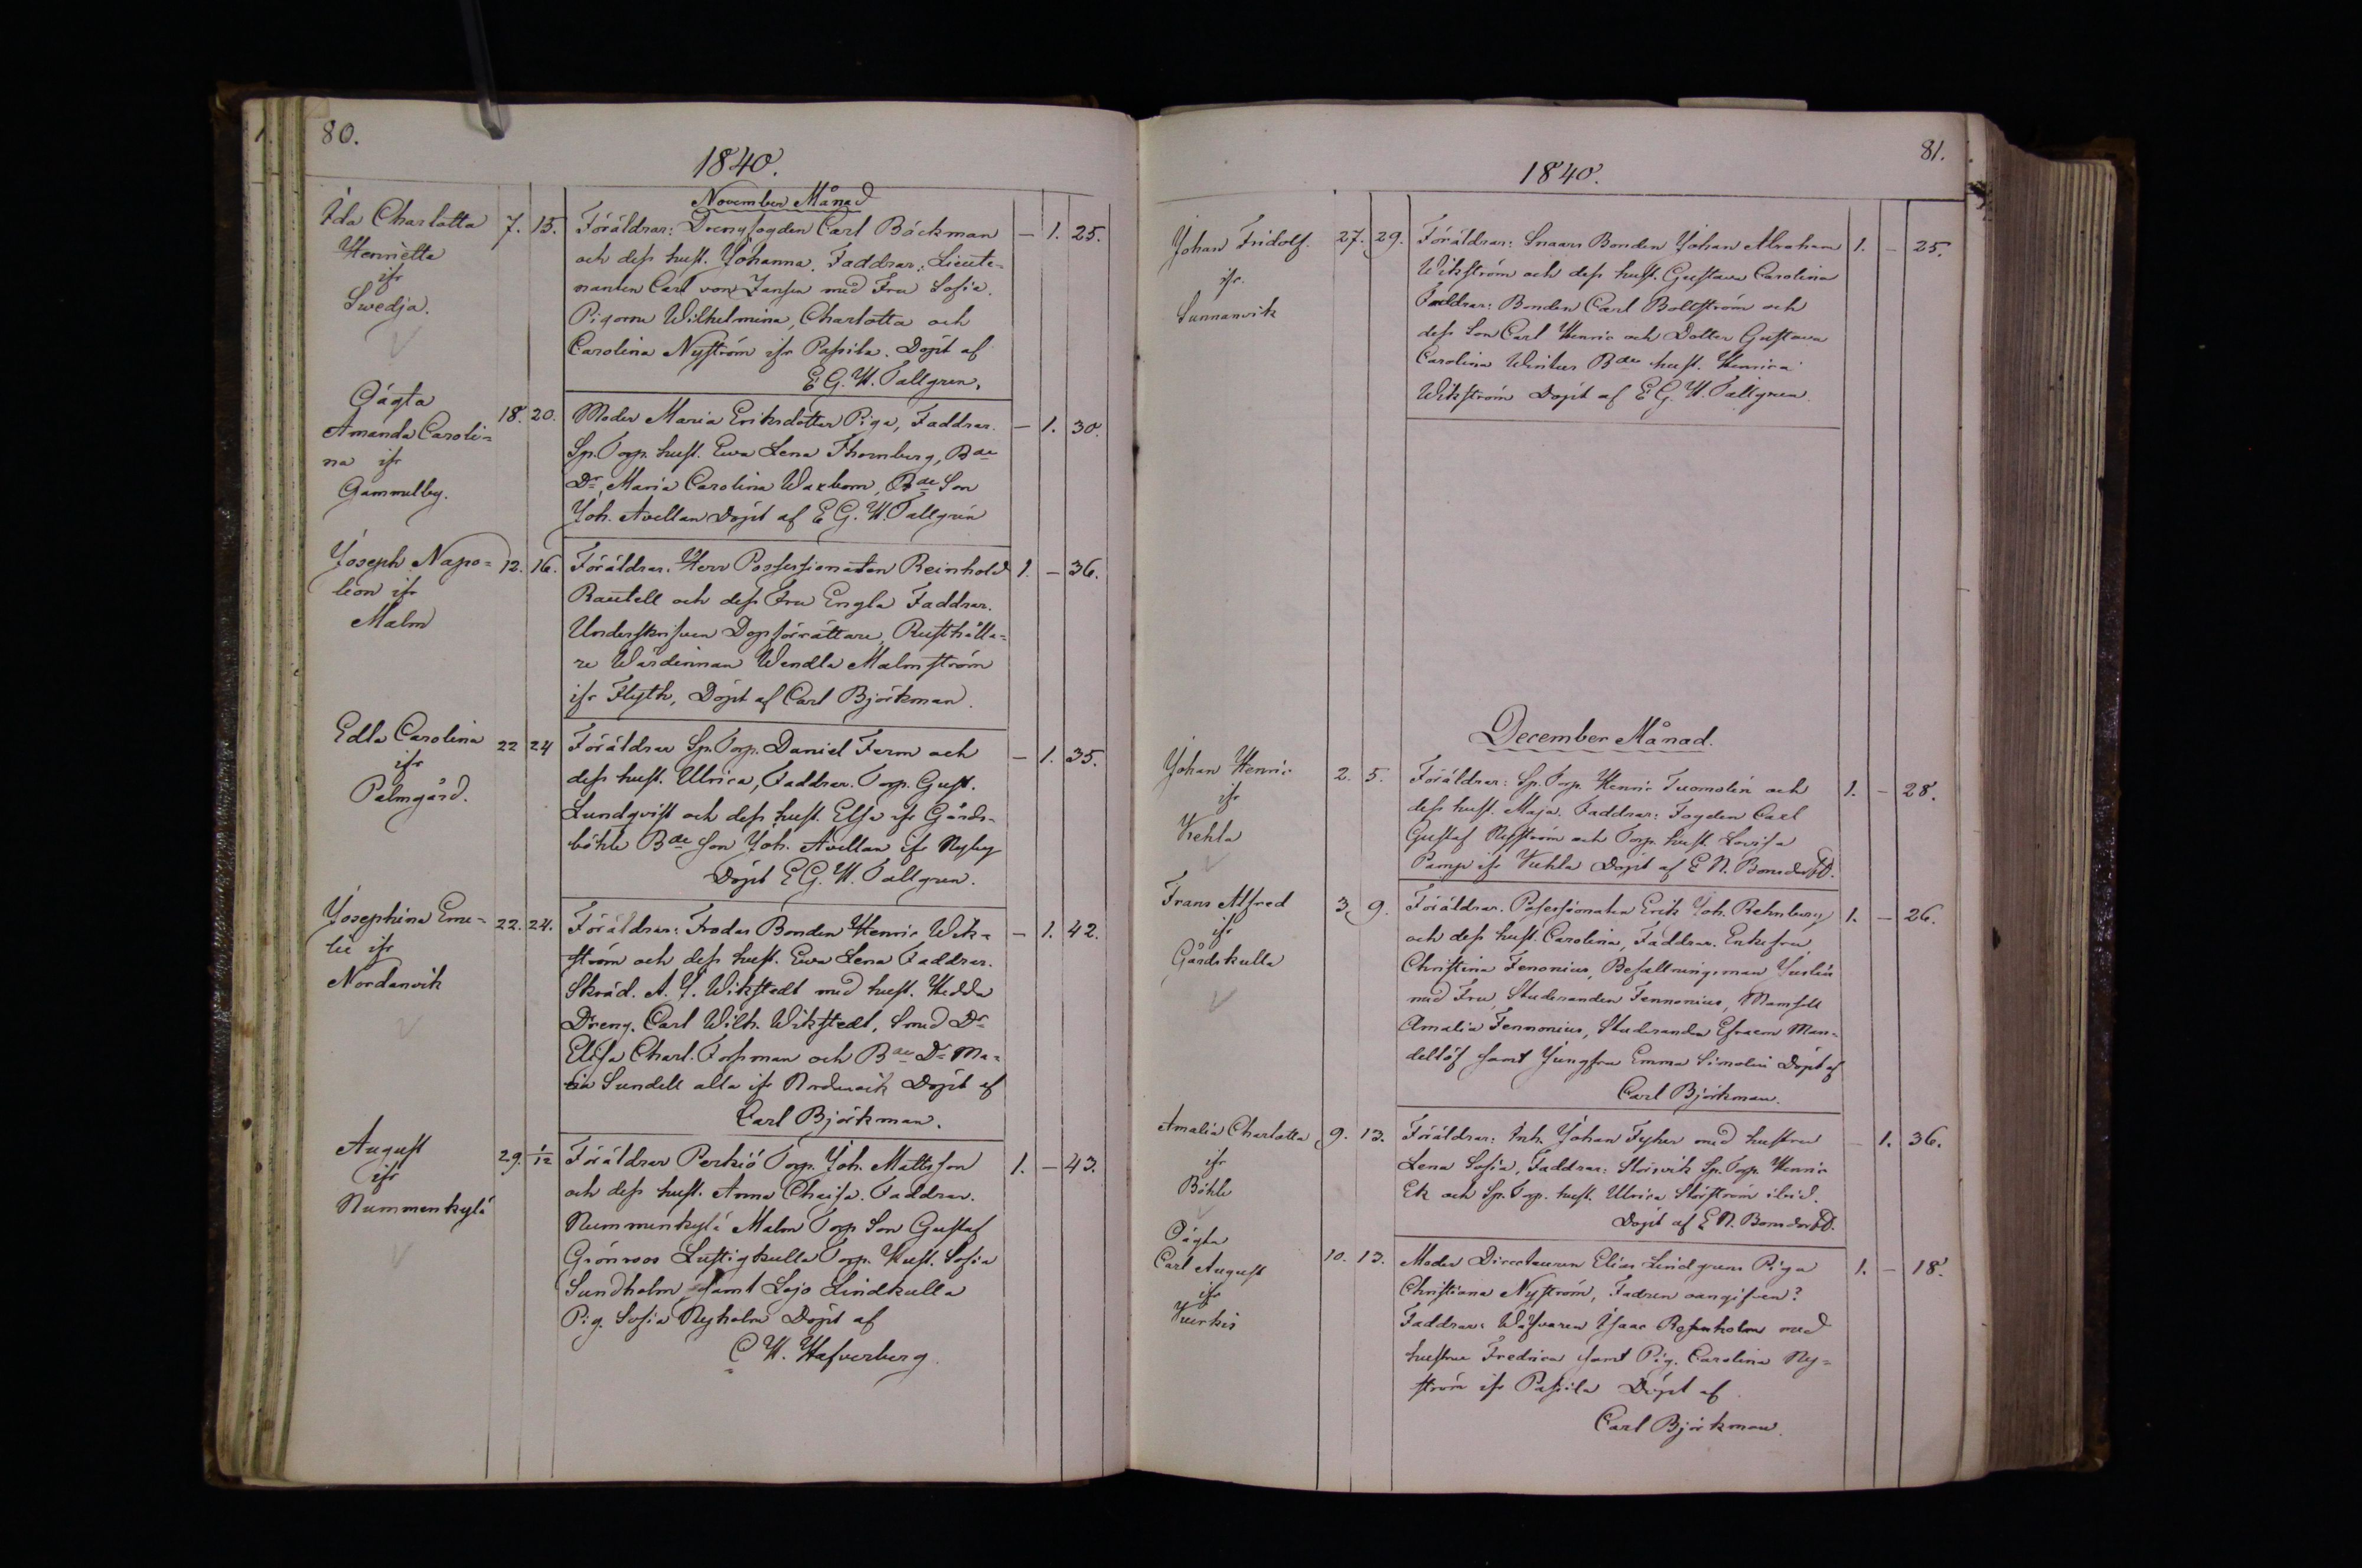 80.
1840.
November Månad
Ida Charlotta 7. 15. Föräldrar: Drengfogden Carl Böckman — 1. 25.
Henrietta och dess hust. Johanna. Faddrar: Lieute-
ifr nanten Carl von Jansen med Fru Sofia.
Swedja. Pigorna Wilhelmina, Charlotta och
Carolina Nyström ifr Passila. Döpt af
E G. H. Tallgren.
Oägta
Amanda Caroli- 18. 20. Moder Maria Eriksdotter Piga, Faddrar. — 1. 30.
na ifr Sp. Torp. hust. Ewa Lena Thornberg, Bde
Gammelby. Dr, Maria Carolina Waxbom, Bde Son
Joh. Avellan Döpt af E G. H. Tallgren
Joseph Napo- 12. 16. Föräldrar. Herr Possessionaten Reinhold 1. — 36.
leon ifr Rautell och dess Fru Engla Faddrar.
Malm Underskrifven Dopförrättare, Rusthålla-
re Wärdinnan Wendla Malmström
ifr Flyth, Döpt af Carl Björkman.
Edla Carolina 22 24 Föräldrar Sp. Torp. Daniel Ferm och — 1. 35.
ifr dess hust. Ulrica, Faddrar. Torp. Gust.
Palmgård. Lundqvist och dess hust. Elsa ifr Gårds-
böhle Bde son Joh. Avellan ifr Nyby
Döpt E G. H. Tallgren.
Josephina Eme- 22. 24. Föräldrar: Frodas Bonden Henric Wik- — 1. 42.
lie ifr ström och dess hust. Ewa Lena Faddrar.
Nordanvik Skräd. A. J. Wikstedt med hust. Hedda
Dreng. Carl Wilh. Wikstedt, Smed Dr
Elisa Charl. Forsman och Bde Dr Ma-
ria Sundell alla ifr Nordanvik Döpt af
Carl Björkman.
August 29. 1/12 Föräldrar Perkiö Torp. Joh. Mattsson 1. — 43.
ifr och dess hust. Anna Chaisa. Faddrar.
Nummenkylä Nummenkylä Malm Torp Son Gustaf
Grönroos Lustigkulla Torp. Hust. Sofia
Sundholm, samt Lojo Lindkulla
Pig. Sofia Nyholm Döpt af
C H. Hafverberg.
81.
1840.
Johan Fridolf. 27. 29. Föräldrar: Snaars Bonden Johan Abraham 1. — 25.
ifr. Wikström och dess hust. Gustava Carolina
Sunnanvik Faddrar: Bonden Carl Boltström och
dess Son Carl Henric och Dotter Gustava
Carolina Winter Bde hust. Henrica
Wikström Döpt af E G. H. Tallgren.
December Månad.
Johan Henric 2. 5. Föräldrar: Sp. Torp. Henric Tuomolin och 1. — 28.
ifr dess hust. Maja. Faddrar: Fogden Carl
Wehla Gustaf Nyström och Torp. hust. Lovisa
Pamp ifr Wehla Döpt af E N. Bonsdorff.
Frans Alfred 3. 9. Föräldrar. Possessionaten Erik Joh. Rehnberg 1. — 26.
ifr och dess hust. Carolina, Faddrar. Enkefru
Gårdskulla Christina Fenonius, Befallningsman Juslin
med Fru, Studeranden Fennonius, Mamsell
Amalia Fennonius, Studeranden Efraem Man-
delöf samt Jungfru Emma Simolin Döpt af
Carl Björkman.
Amalia Charlotta 9. 13. Föräldrar: Inh. Johan Fisher med hustru — 1. 36.
ifr Lena Sofia, Faddrar: Storvik Sp. Torp. Henric
Böhle Ek och Sp. Torp. hust. Ulrica Storström ibid.
Döpt af E N. Bonsdorff.
Oägta
Carl August 10. 13. Moder Directeuren Elias Lindgrens Piga 1. — 18.
ifr Christiana Nyström, Fadren oangifven?
Kurkis Faddrar: Wäfvaren Isaac Rosenholm med
hustru Fredrica samt Pig. Carolina Ny-
ström ifr Passila Döpt af
Carl Björkman.